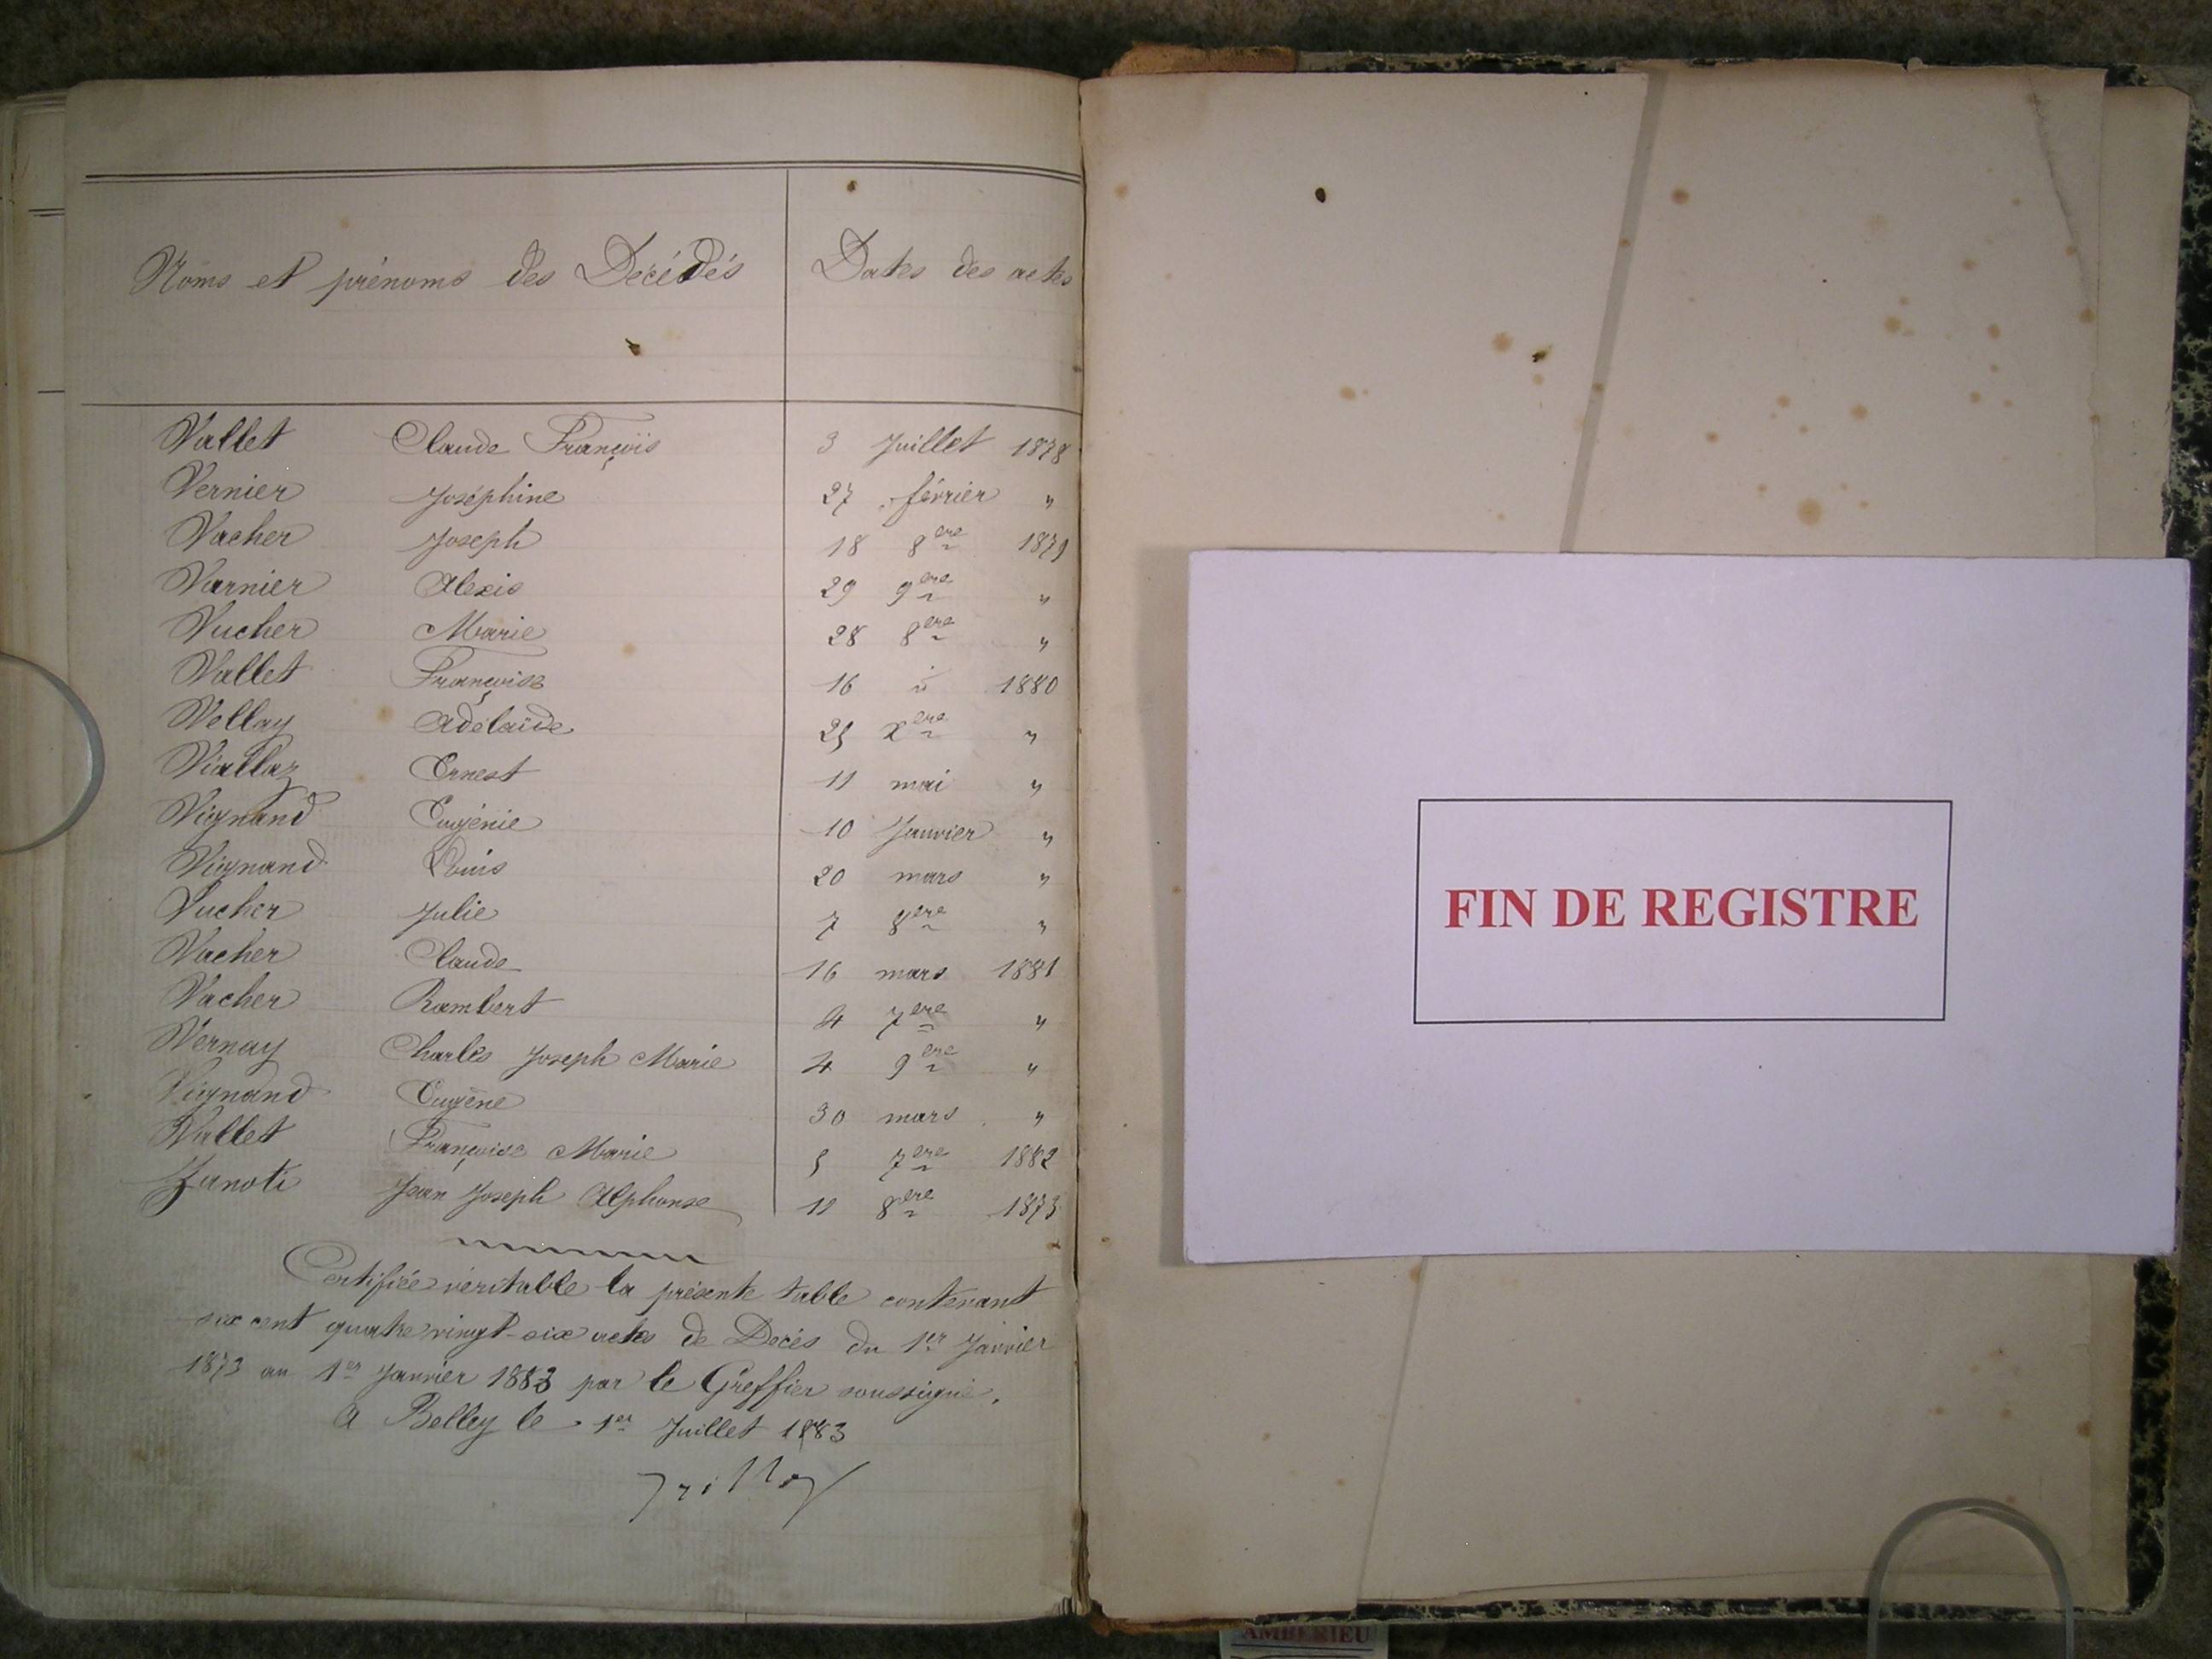 Noms et prénoms des Décédés Dates des actes
Vallet Claude François 3 Juillet 1878
Vernier Joséphine 27 février "
Vacher Joseph 18 8ere 1879
Varnier Alexis 29 9ere "
Vucher Marie 28 8ere "
Vallet Françoise 16 d 1880
Vellay Adélaïde 25 Xere "
Viallaz Ernest 11 mai "
Vignand Eugénie 10 Janvier "
Vignand Louis 20 mars "
Vucher Julie 7 8ere "
Vacher Claude 16 mars 1881
Vacher Rambert 4 7ere "
Vernay Charles Joseph Marie 4 9ere "
Vignand Eugène 30 mars "
Vallet Françoise Marie 5 7ere 1882
Zanoti Jean Joseph Alphonse 11 8ere 1873
Certifiée véritable la présente table contenant
six cent quatre vingt-six actes de Décès du 1er Janvier
1873 au 1er Janvier 1883 par le Greffier soussigné.
A Belley le 1er Juillet 1883
FIN DE REGISTRE
AMBERIEU